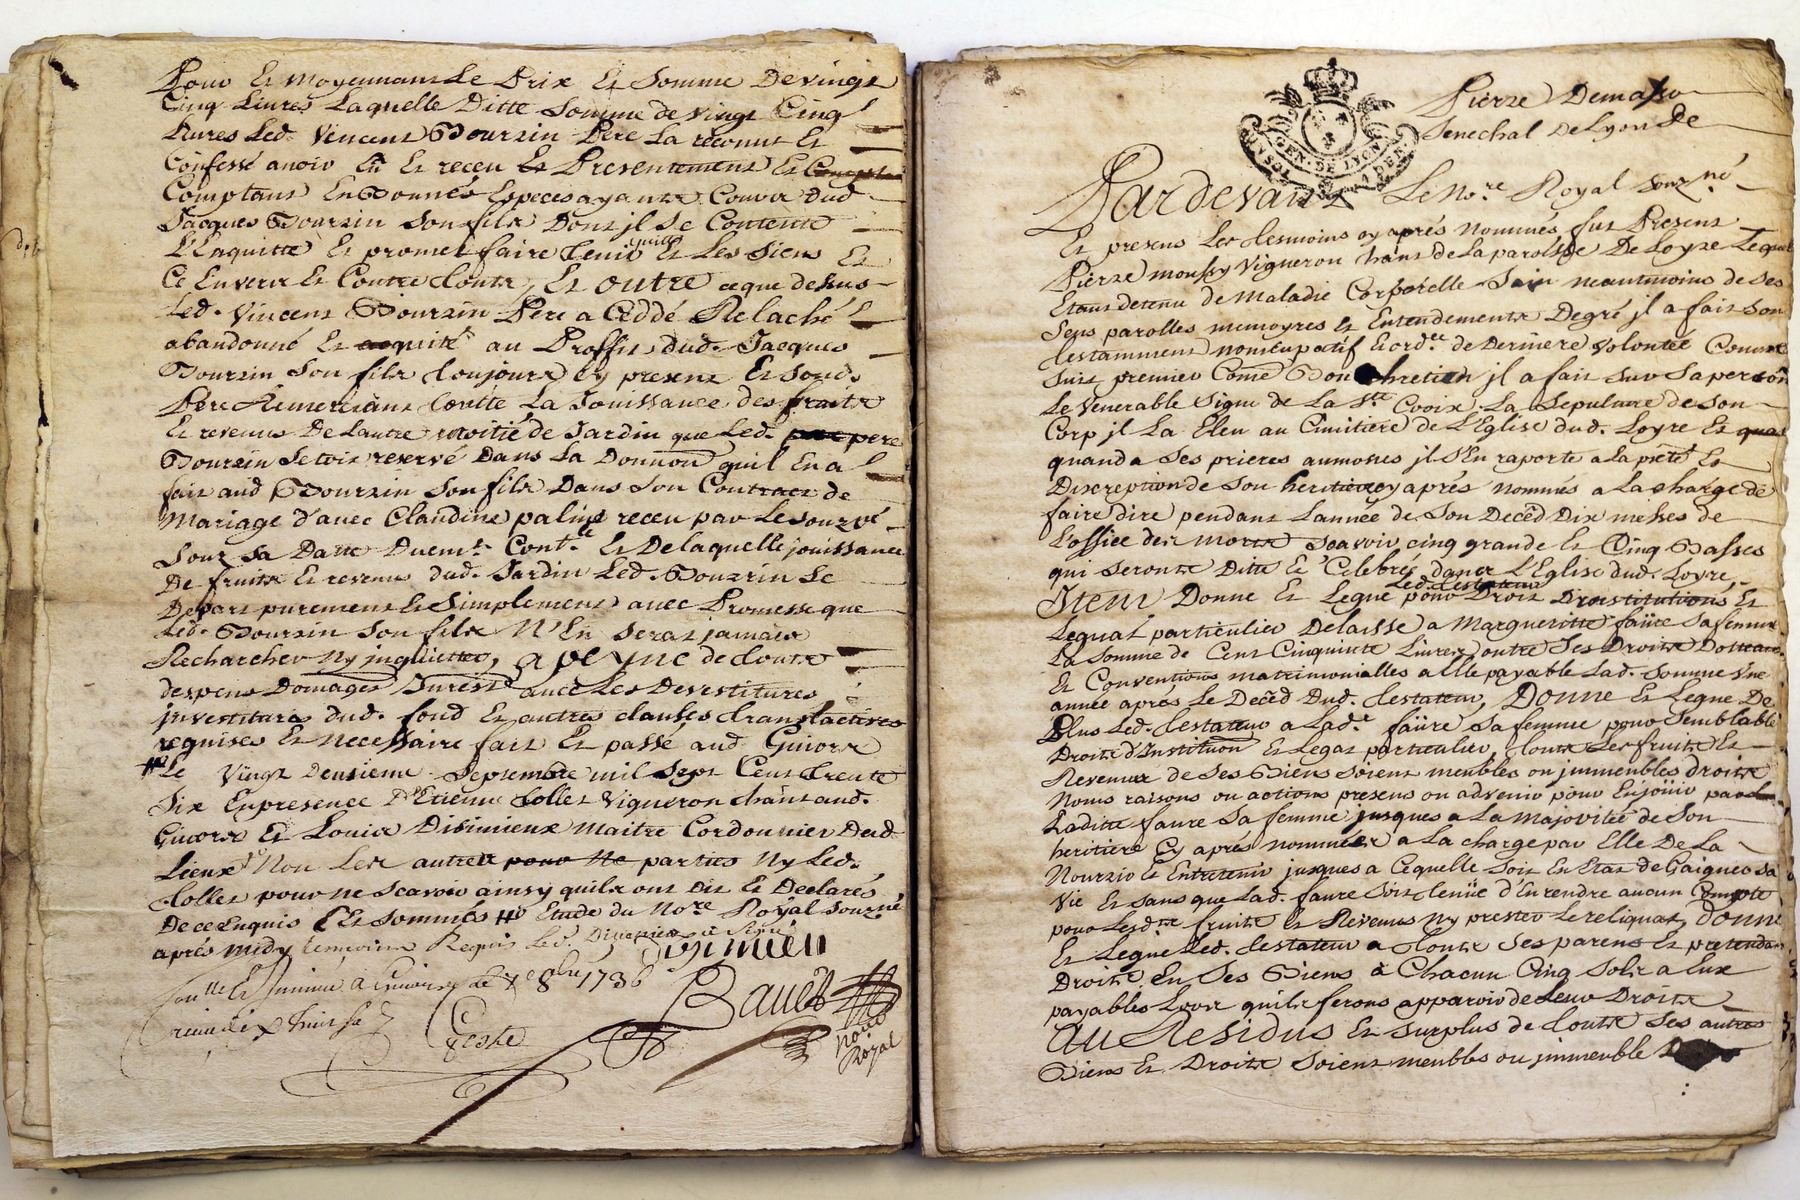 Pour Et moyennant Le Prix Et Somme De vingt
Cinq Livres Laquelle Ditte Somme de vingt Cinq
Livres Led. Vencent Dourzin Pere La reconnu Et
Confessé avoir Eü Et receu Presentement Et
Comptant En Bonnes Especes ayant Cour dud
Jacques Dourzin Son fils Dont il Se Contente
L'Enquitte Et promet faire tenir quitte Et Les Siens Et
Ce Envers Et Contre touts, Et outre ce que dessus
Led. Vincent Dourzin Pere a Ceddé Relaché
abandonné Et acquité au Proffit dud. Jacques
Dourzin Son fils toujours cy present Et Sond.
Pere Remerciant toutte La Jouissance des fruits
Et revenus De Lautre moitié de Jardin que Led. pere
Dourzin Setoit reservé Dans La Donnon quil En a
fait aud Dourzin Son fils Dans Son Contract de
Mariage d'avec Claudine palin receu par Le Souzné
Sour Sa Datte Duemt. Contlé Et De laquelle jouissance
De fruits Et revenu dud. Jardin Led. Dourzin Se
Depart purement Et Simplement avec Promesse que
Led. Dourzin Son fils N'En Serat jamais
Recharcher Ny jnquietter, a peyne de touts
despens Domages Jnterest avec Les Devestitures
jnvestitures dud. fond Et autres clauses translactives
requises Et necessaire fait Et passé aud Givors
Le Vingt Deuxieme Septembre mil Sept Cent trente
Six En presence D'Etienne Collet Vigneron habitant aud.
Givors Et Louis Disimieux Maitre Cordonnier Dud.
Lieux Non Les autres parties Ny Led.
Collet pour ne Scavoir ainsy quils ont Dit Et Declarés
De ce Enquis Et Sommés Etude du No.re Royal Souzné
après midy temoins Requis Led. Disimieux a Signé
Disimieu
a Givors le 7e 8bre 1736
Baues
No.re
Royal
Pierre Dema
Senechal De Lyon De
GEN. DE LYON
Pardevant Le No.re Royal Souzné
Et presens Les tesmoins cy aprés Nommés fut Present
Pierre moussy Vigneron hant de La paroisse De Loyre Lequel
Etant detenu de Maladie Corporelle Sain neantmoins de Ses
Sens parolles memoyres Et Entendements Degré jl a fait Son
testamment noncupatif Et ord.ce de Derniere volontée Comme
Suit premier Come Bon Chretien jl a fait Sur Sa personne
Le Venerable Signe de La Ste Croix, La Sepulture de Son
Corp jl La Eleu au Cimitiere de L'Eglise dud. Loyre Et
quand a Ses prieres aumones jl S'En raporte a La pieté Et
Discreption de Son heritiere cy aprés nommés a La charge de
faire dire pendant Lannée de Son Decêd Dix messes de
L'office des morts Scavoir cinq grande Et Cinq Basses
qui Seronts Ditte Et Celebres dans L'Eglise dud. Loyre,
Item Donne Et Legue Led. testateur pour Droit D'institutions Et
Legnat particulier Delaisse a Marguerite faüre Sa femme
La Somme de Cent Cinquante Livres outre Ses Droits Dotteaux
Et Conventions matrimonialles a Elle payable Lad. Somme Une
année aprés Le Decêd Dud. testateur, Donne Et Legue De
Plus Led. testateur a Lade. faüre Sa femme pour Semblable
Droits d'Institution Et Legat particulier, touts Les fruits Et
Revenux de Ses Biens Soient meubles ou jmmeubles droits
Noms raisons ou actions presens ou advenir pour En joüir par
Laditte faure Sa femme jusques a La majoritée de Son
heritiere Cy aprés nommée a La charge par Elle De La
Nourrir Et Entretenir jusques a Cequelle Soit En Etat de Gaigner Sa
Vie Et Sans que Lad. faure Soit tenüe d'En rendre aucun Compte
pour Lesdts fruits Et Revenus Ny prester Le reliquat, donne
Et Legue Led. testateur a touts Ses parens Et pretendans
Droits En Ses Biens à Chacun Cinq Sols a Eux
payables Lors quils feront apparoir de Leur Droits
Au Residus Et Surplus de touts Ses autres
Biens Et Droits Soient meubles ou jmmeuble